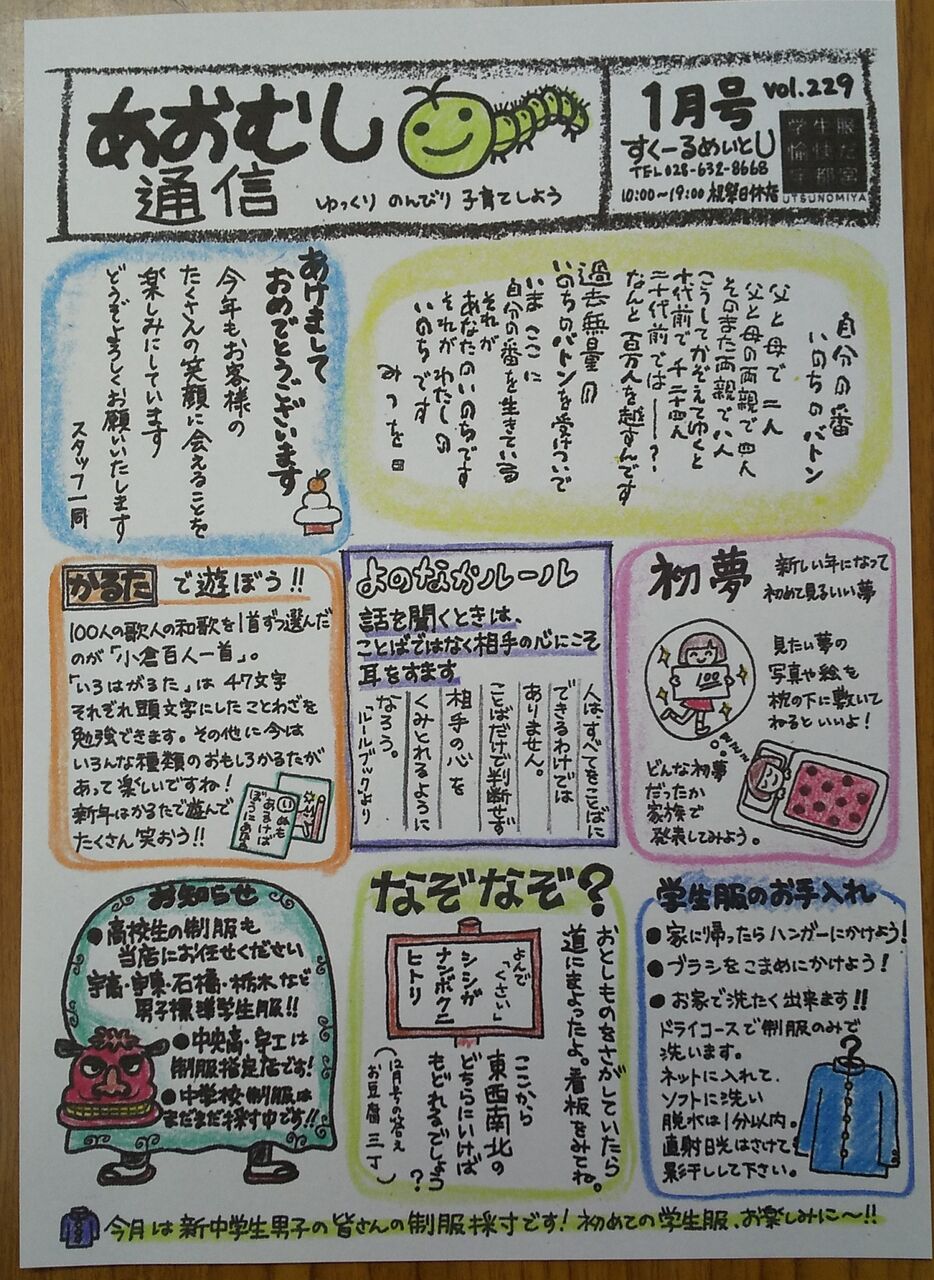 あおむし
通信
ゆっくり のんびり 子育てしよう
1月号 vol.229
すくーるめいとU
TEL 028-632-8668
10:00〜19:00 祝祭日休店
学生服
愉快だ
宇都宮
UTSUNOMIYA
自分の番
いのちのバトン
父と母で二人
父と母の両親で四人
そのまた両親で八人
こうしてかぞえてゆくと
十代前で千二十四人
二十代前では―?
なんと百万人を越すんです
過去無量の
いのちのバトンを受けついで
いまここに
自分の番を生きている
それが
あなたのいのちです
それがわたしの
いのちです
みつを
あけまして
おめでとうございます
今年もお客様の
たくさんの笑顔に会えることを
楽しみにしています
どうぞよろしくお願いいたします
スタッフ一同
かるたで遊ぼう!!
100人の歌人の和歌を1首ずつ選んだ
のが「小倉百人一首」。
「いろはがるた」は47文字
それぞれ頭文字にしたことわざを
勉強できます。その他に今は
いろんな種類のおもしろかるたが
あって楽しいですね!
新年はかるたで遊んで
たくさん笑おう!!
い
いぬも
あるけば
ぼうにあたる
よのなかルール
話を聞くときは、
ことばではなく相手の心にこそ
耳をすます
人はすべてをことばに
できるわけでは
ありません。
ことばだけで判断せず
相手の心を
くみとれるように
なろう。
「ルールブック」より
初夢
新しい年になって
初めて見るいい夢
100
見たい夢の
写真や絵を
枕の下に敷いて
ねるといいよ!
ZZZZ
どんな初夢
だったか
家族で
発表してみよう。
お知らせ
●高校生の制服も
当店にお任せください
宇高・宇東・石橋・栃木など
男子標準学生服!!
●中央高・宇工は
制服指定店です!
●中学校制服は
まだまだ採寸中です!!
なぞなぞ?
おとしものをさがしていたら
道にまよったよ。看板をみてね。
よんで
「くさい」
シシガ
ナンボクニ
ヒトリ
ここから
東西南北の
どちらにいけば
もどれるでしょう
?
(12月号の答え
お豆腐三丁)
学生服のお手入れ
●家に帰ったらハンガーにかけよう!
●ブラシをこまめにかけよう!
●お家で洗たく出来ます!!
ドライコースで制服のみで
洗います。
ネットに入れて、
ソフトに洗い
脱水は1分以内。
直射日光はさけて
影干しして下さい。
今月は新中学生男子の皆さんの制服採寸です!初めての学生服、お楽しみに〜!!